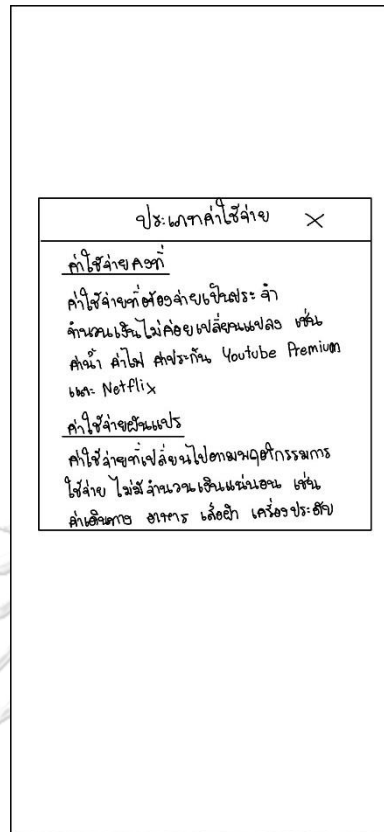 ประเภทค่าใช้จ่าย ×
ค่าใช้จ่ายคงที่
ค่าใช้จ่ายที่ต้องจ่ายเป็นประจำ
จำนวนเงินไม่ค่อยเปลี่ยนแปลง เช่น
ค่าน้ำ ค่าไฟ ค่าประกัน Youtube Premium
และ Netflix
ค่าใช้จ่ายผันแปร
ค่าใช้จ่ายที่เปลี่ยนไปตามพฤติกรรมการ
ใช้จ่าย ไม่มีจำนวนเงินแน่นอน เช่น
ค่าเดินทาง อาหาร เสื้อผ้า เครื่องประดับ